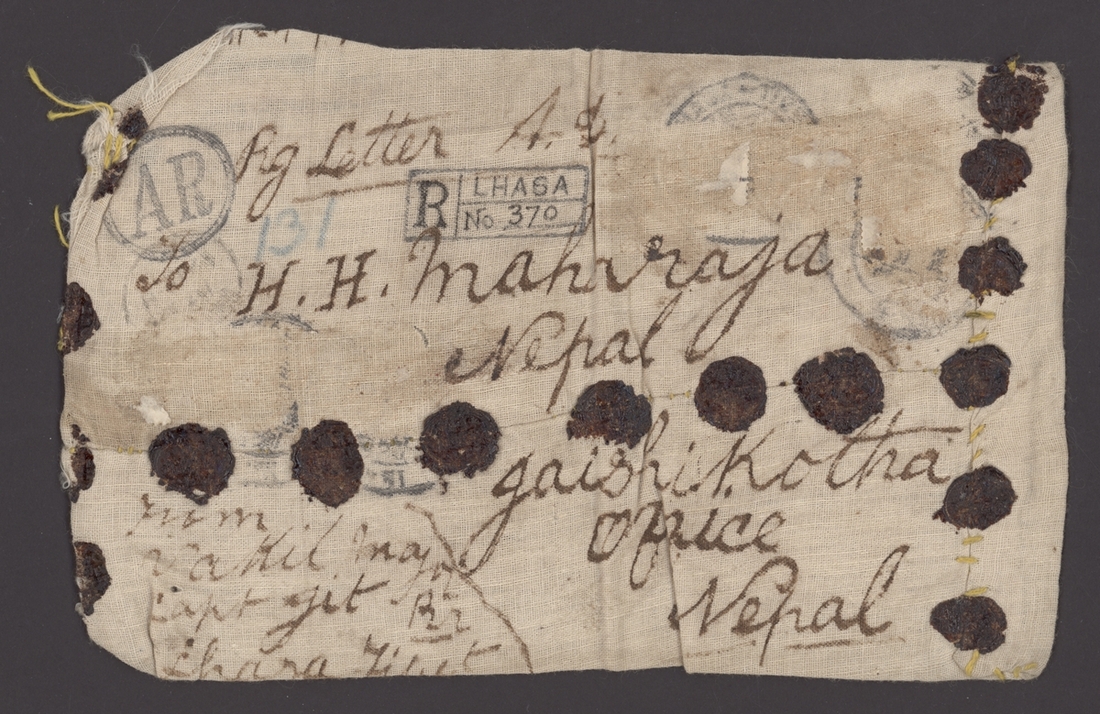 Rg Letter A. D.
AR
R LHASA
No. 370
131
To
H. H. Maharaja
Nepal
gaishi Kotha
office
Nepal
From
Vakil
Capt git Br
Lhasa Tibet